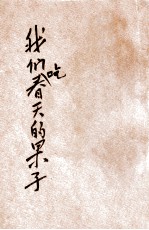 我们吃春天的果子